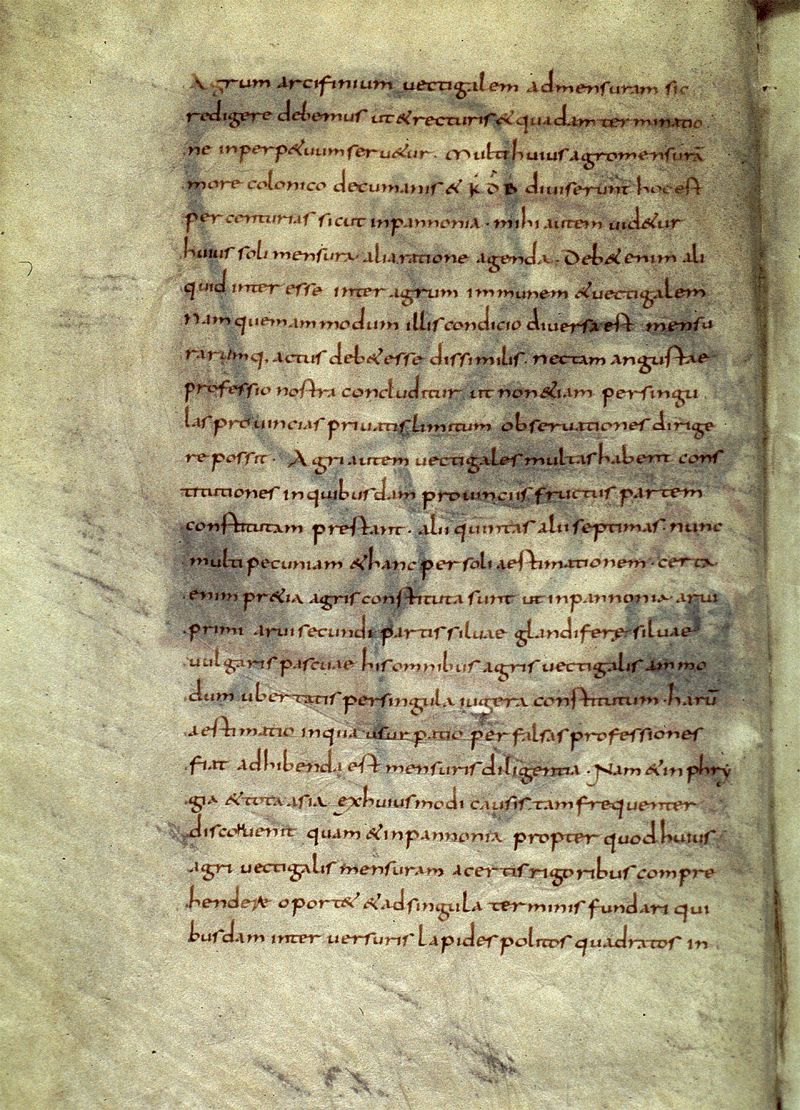 Agrum arcifinium uectigalem ad mensuram sic
redigere debemus ut & recturis & quadam terminatio
ne in perp&uum seru&ur. multi huius agro mensurā
more colonico decumanis & k diuiserunt hoc est
per centurias sicut in pannonia. mihi autem uid&ur
huius soli mensura alia ratione agenda. Deb& enim ali
quid inter esse inter agrum immunem & uectigalem
nam quemammodum illis condicio diuersa est mensu
rarumq, actus deb& esse dissimilis. nec tam angustae
professio nostra concluditur ut non &iam per singu
las prouincias priuatis limitum obseruationes dirige
re possit. Agri autem uectigales multas habent cons
titutiones in quibusdam prouinciis fructus partem
constitutam prestant. alii quintas alii septimas. nunc
multi pecuniam & hanc per soli aestimationem. certa
enim pr&ia agris constituta sunt ut in pannonia arui
primi arui secundi partis siluae glandiferę siluae
uulgaris pascuae his omnibus agris uectigalis ammo
dum ubertatis per singula iugera constitutum. harū
aestimatio in qua usurpatio per falsas professiones
fiat adhibenda est mensuris diligentia. Nam & in phry
gia & tota asia ex huius modi causis tam frequenter
uenit quam & in pannonia propter quod huius
agri uectigalis mensuram a certis rigoribus compre
oport& & ad singula terminis fundari qui
busdam inter uersuris lapides politos quadratos in